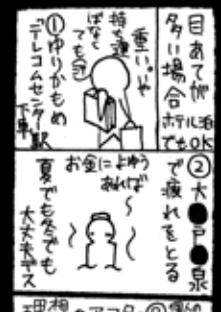 目あてが
多い場合
ホテル泊
でもOK
重い。いや
持ち運
ばなく
ても可
①ゆりかもめ
「テレコムセンター」駅
下車
②大●戸●泉
で疲れをとる
お金によゆう
あれば
夏でも冬でも
大丈夫デス